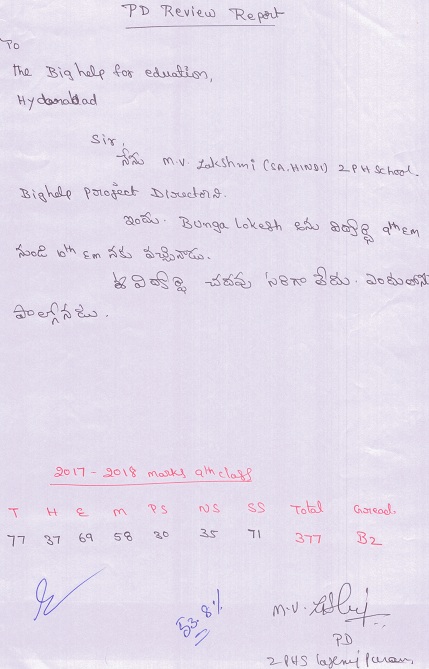 PD Review Report
To
The Big help for eduation,
Hyderabad
Sir,
నేను M.V. Lakshmi (SA.HINDI) ZPH School.
Bighelp Project Director.
Bunga Lokesh అను విద్యార్థి 9th EM
నుండి 10th EM నకు వచ్చినాడు.
ఈ విద్యార్థి చదవు సరిగా లేదు.
2017 - 2018 marks 9th class
T H E M PS NS SS Total Gread.
77 37 69 58 30 35 71 377 B2
53.8%
M.V.
PD
ZPHS